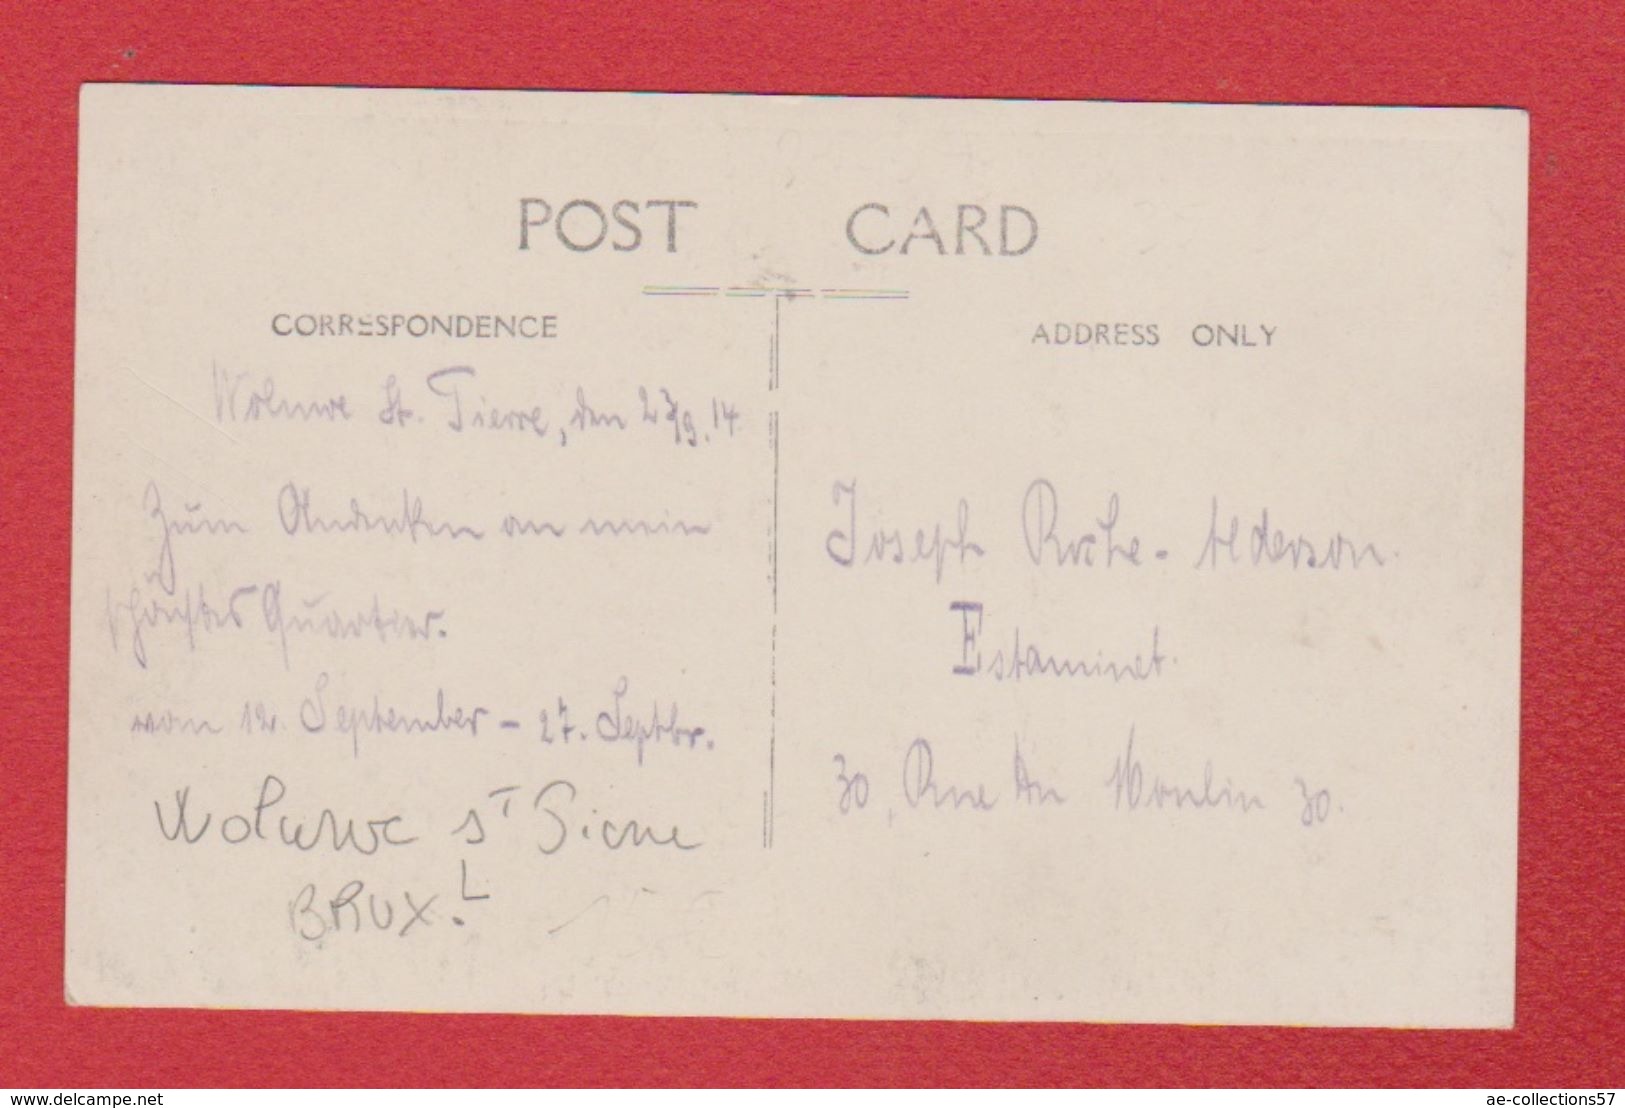 POST CARD
CORRESPONDENCE
Woluwe St. Pierre, den 27/9.14
Zum Andenken an mein
schönstes Quartier.
vom 12. September - 27. Septbr.
Woluwe ST Pierre
BRUX.L
ADDRESS ONLY
Joseph - Alderson.
Estaminet.
30, Rue Au Moulin 30.
www.delcampe.net
ae-collections57